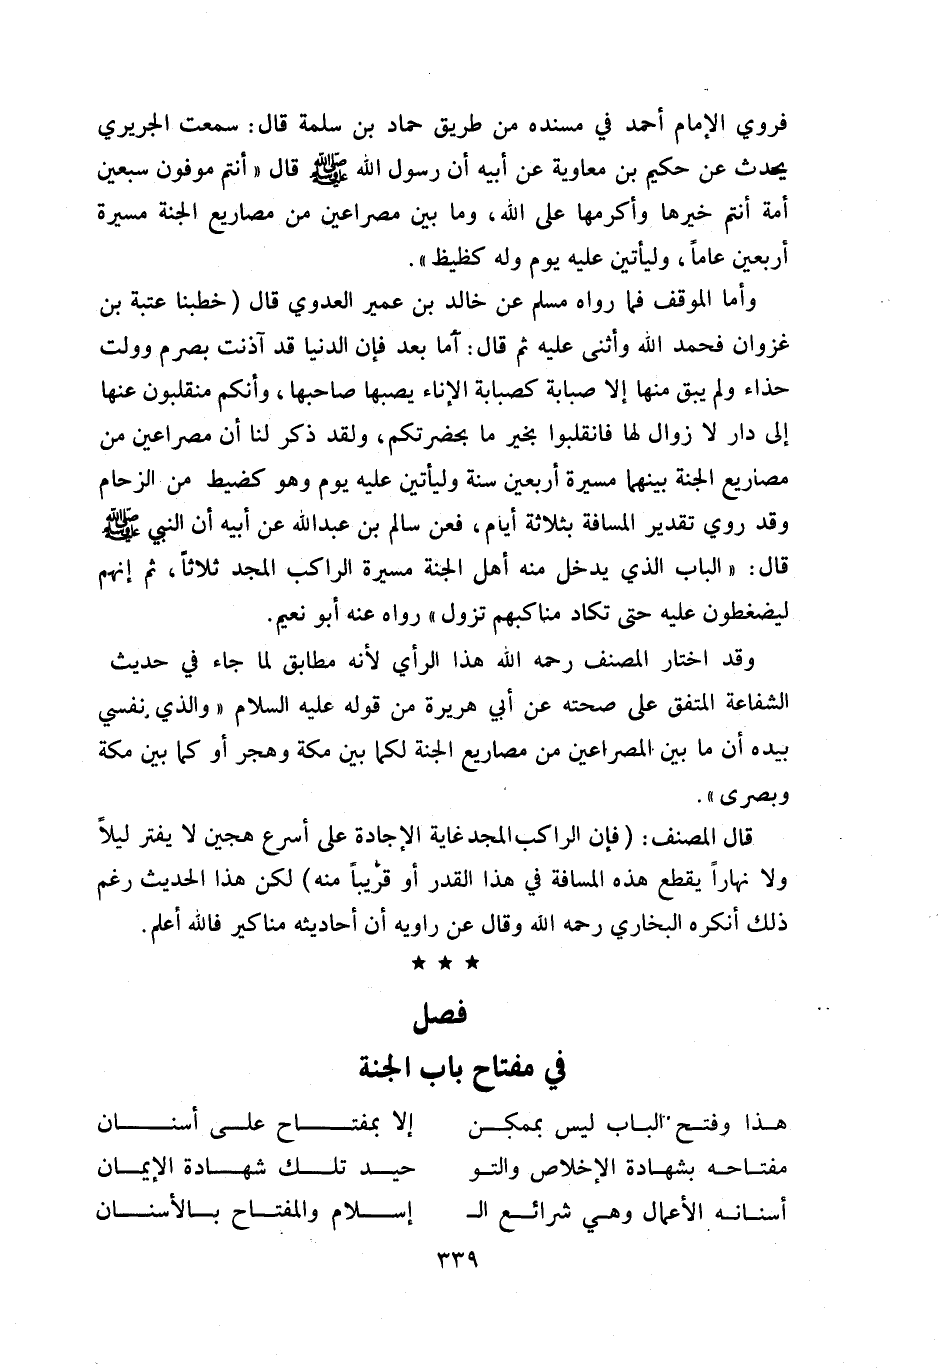 فروي الإمام أحمد في مسنده من طريق حماد بن سلمة قال: سمعت الجريري
يحدث عن حكيم بن معاوية عن أبيه أن رسول الله ﷺ قال « أنتم موفون سبعين
أمة أنتم خيرها وأكرمها على الله، وما بين مصراعين من مصاريع الجنة مسيرة
أربعين عاماً، وليأتين عليه يوم وله كظيظ ».
وأما الموقف فما رواه مسلم عن خالد بن عمير العدوي قال (خطبنا عتبة بن
غزوان فحمد الله وأثنى عليه ثم قال: أما بعد فإن الدنيا قد آذنت بصرم وولت
حذاء ولم يبق منها إلا صبابة كصبابة الإناء يصبها صاحبها، وأنكم منقلبون عنها
إلى دار لا زوال لها فانقلبوا بخير ما بحضرتكم، ولقد ذكر لنا أن مصراعين من
مصاريع الجنة بينهما مسيرة أربعين سنة وليأتين عليه يوم وهو كضيط من الزحام
وقد روي تقدير المسافة بثلاثة أيام، فعن سالم بن عبدالله عن أبيه أن النبي ﷺ
قال: « الباب الذي يدخل منه أهل الجنة مسيرة الراكب المجد ثلاثاً، ثم إنهم
ليضغطون عليه حتى تكاد مناكبهم تزول » رواه عنه أبو نعيم.
وقد اختار المصنف رحمه الله هذا الرأي لأنه مطابق لما جاء في حديث
الشفاعة المتفق على صحته عن أبي هريرة من قوله عليه السلام « والذي نفسي
بيده أن ما بين المصراعين من مصاريع الجنة لكما بين مكة وهجر أو كما بين مكة
وبصرى ».
قال المصنف: (فإن الراكب المجد غاية الإجادة على أسرع هجين لا يفتر ليلاً
ولا نهاراً يقطع هذه المسافة في هذا القدر أو قريباً منه) لكن هذا الحديث رغم
ذلك أنكره البخاري رحمه الله وقال عن راويه أن أحاديثه مناكير فالله أعلم.
★ ★ ★
فصل
في مفتاح باب الجنة
هـذا وفتـح الباب ليس بممكـن إلا بمفتـاح علـى أسنـان
مفتـاحـه بشهـادة الإخلاص والتـو حيـد تلـك شهـادة الإيمـان
أسنـانـه الأعمـال وهـي شرائـع الـ إسـلام والمفتـاح بـالأسنـان
٣٣٩